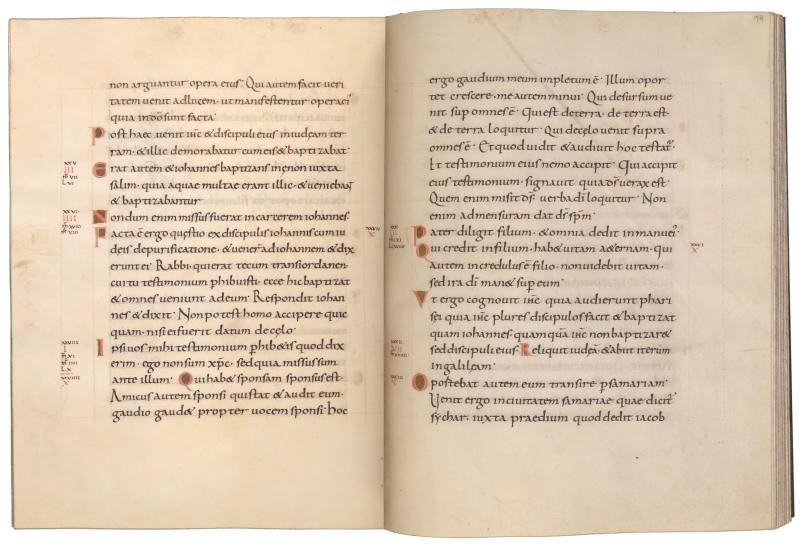 non arguantur opera eius· Qui autem facit veri
tatem venit ad lucem· ut manifestentur opera ei'
quia in dō sunt facta·
Post haec venit ihc̄ & discipuli eius in iudęam ter
ram· & illic demorabatur cum eis & baptizabat
Erat autem & iohannes baptizans in enon iuxta
salim· quia aquae multae erant illic· & veniebant
& baptizabantur
Nondum enim missus fuerat in carcerem iohannes·
Facta ē ergo quęstio ex discipulis iohannis cum iu
deis de purificatione· & vener̄ ad iohannem & dix
erunt ei· Rabbi· qui erat tecum trans iordanen·
cui tu testimonium phibuisti· ecce hic baptizat
& omnes veniunt ad eum· Respondit iohan
nes & dixit· Non potest homo accipere quic
quam· nisi ei fuerit datum de cęlo·
Ipsi vos mihi testimonium phib&is quod dix
erim· ego non sum xp̄c· sed quia missus sum
ante illum· Qui hab& sponsam sponsus est·
Amicus autem sponsi qui stat & audit eum·
gaudio gaud& propter vocem sponsi· hoc
xxv
III
xxvi
IIII
xxvIII
I
x
94
ergo gaudium meum impletum ē· Illum opor
tet crescere· me autem minui· Qui desursum ve
nit sup omnes ē· Qui est de terra· de terra est·
& de terra loquitur· Qui de cęlo venit supra
omnes ē· Et quod vidit & audivit hoc testat'·
Et testimonium eius nemo accipit· Qui accipit
eius testimonium· signavit quia ds̄ verax est·
Quem enim misit ds̄· verba dī loquitur· Non
enim ad mensuram dat ds̄ spm̄·
Pater diligit filium· & omnia dedit in manu ei'·
Qui credit in filium· hab& vitam aeternam· qui
autem incredulus ē filio· non videbit vitam·
sed ira dī man& sup eum·
Ut ergo cognovit ihc̄ quia audierunt phari
sei quia ihc̄ plures discipulos facit & baptizat
quam iohannes· quamquā ihc̄ non baptizar&
sed discipuli eius· Reliquit iudęā· & abiit iterum
in galilęam·
Oportebat autem eum transire p samariam·
Venit ergo in civitatem samariae quae dicit'
sychar· iuxta praedium quod dedit iacob